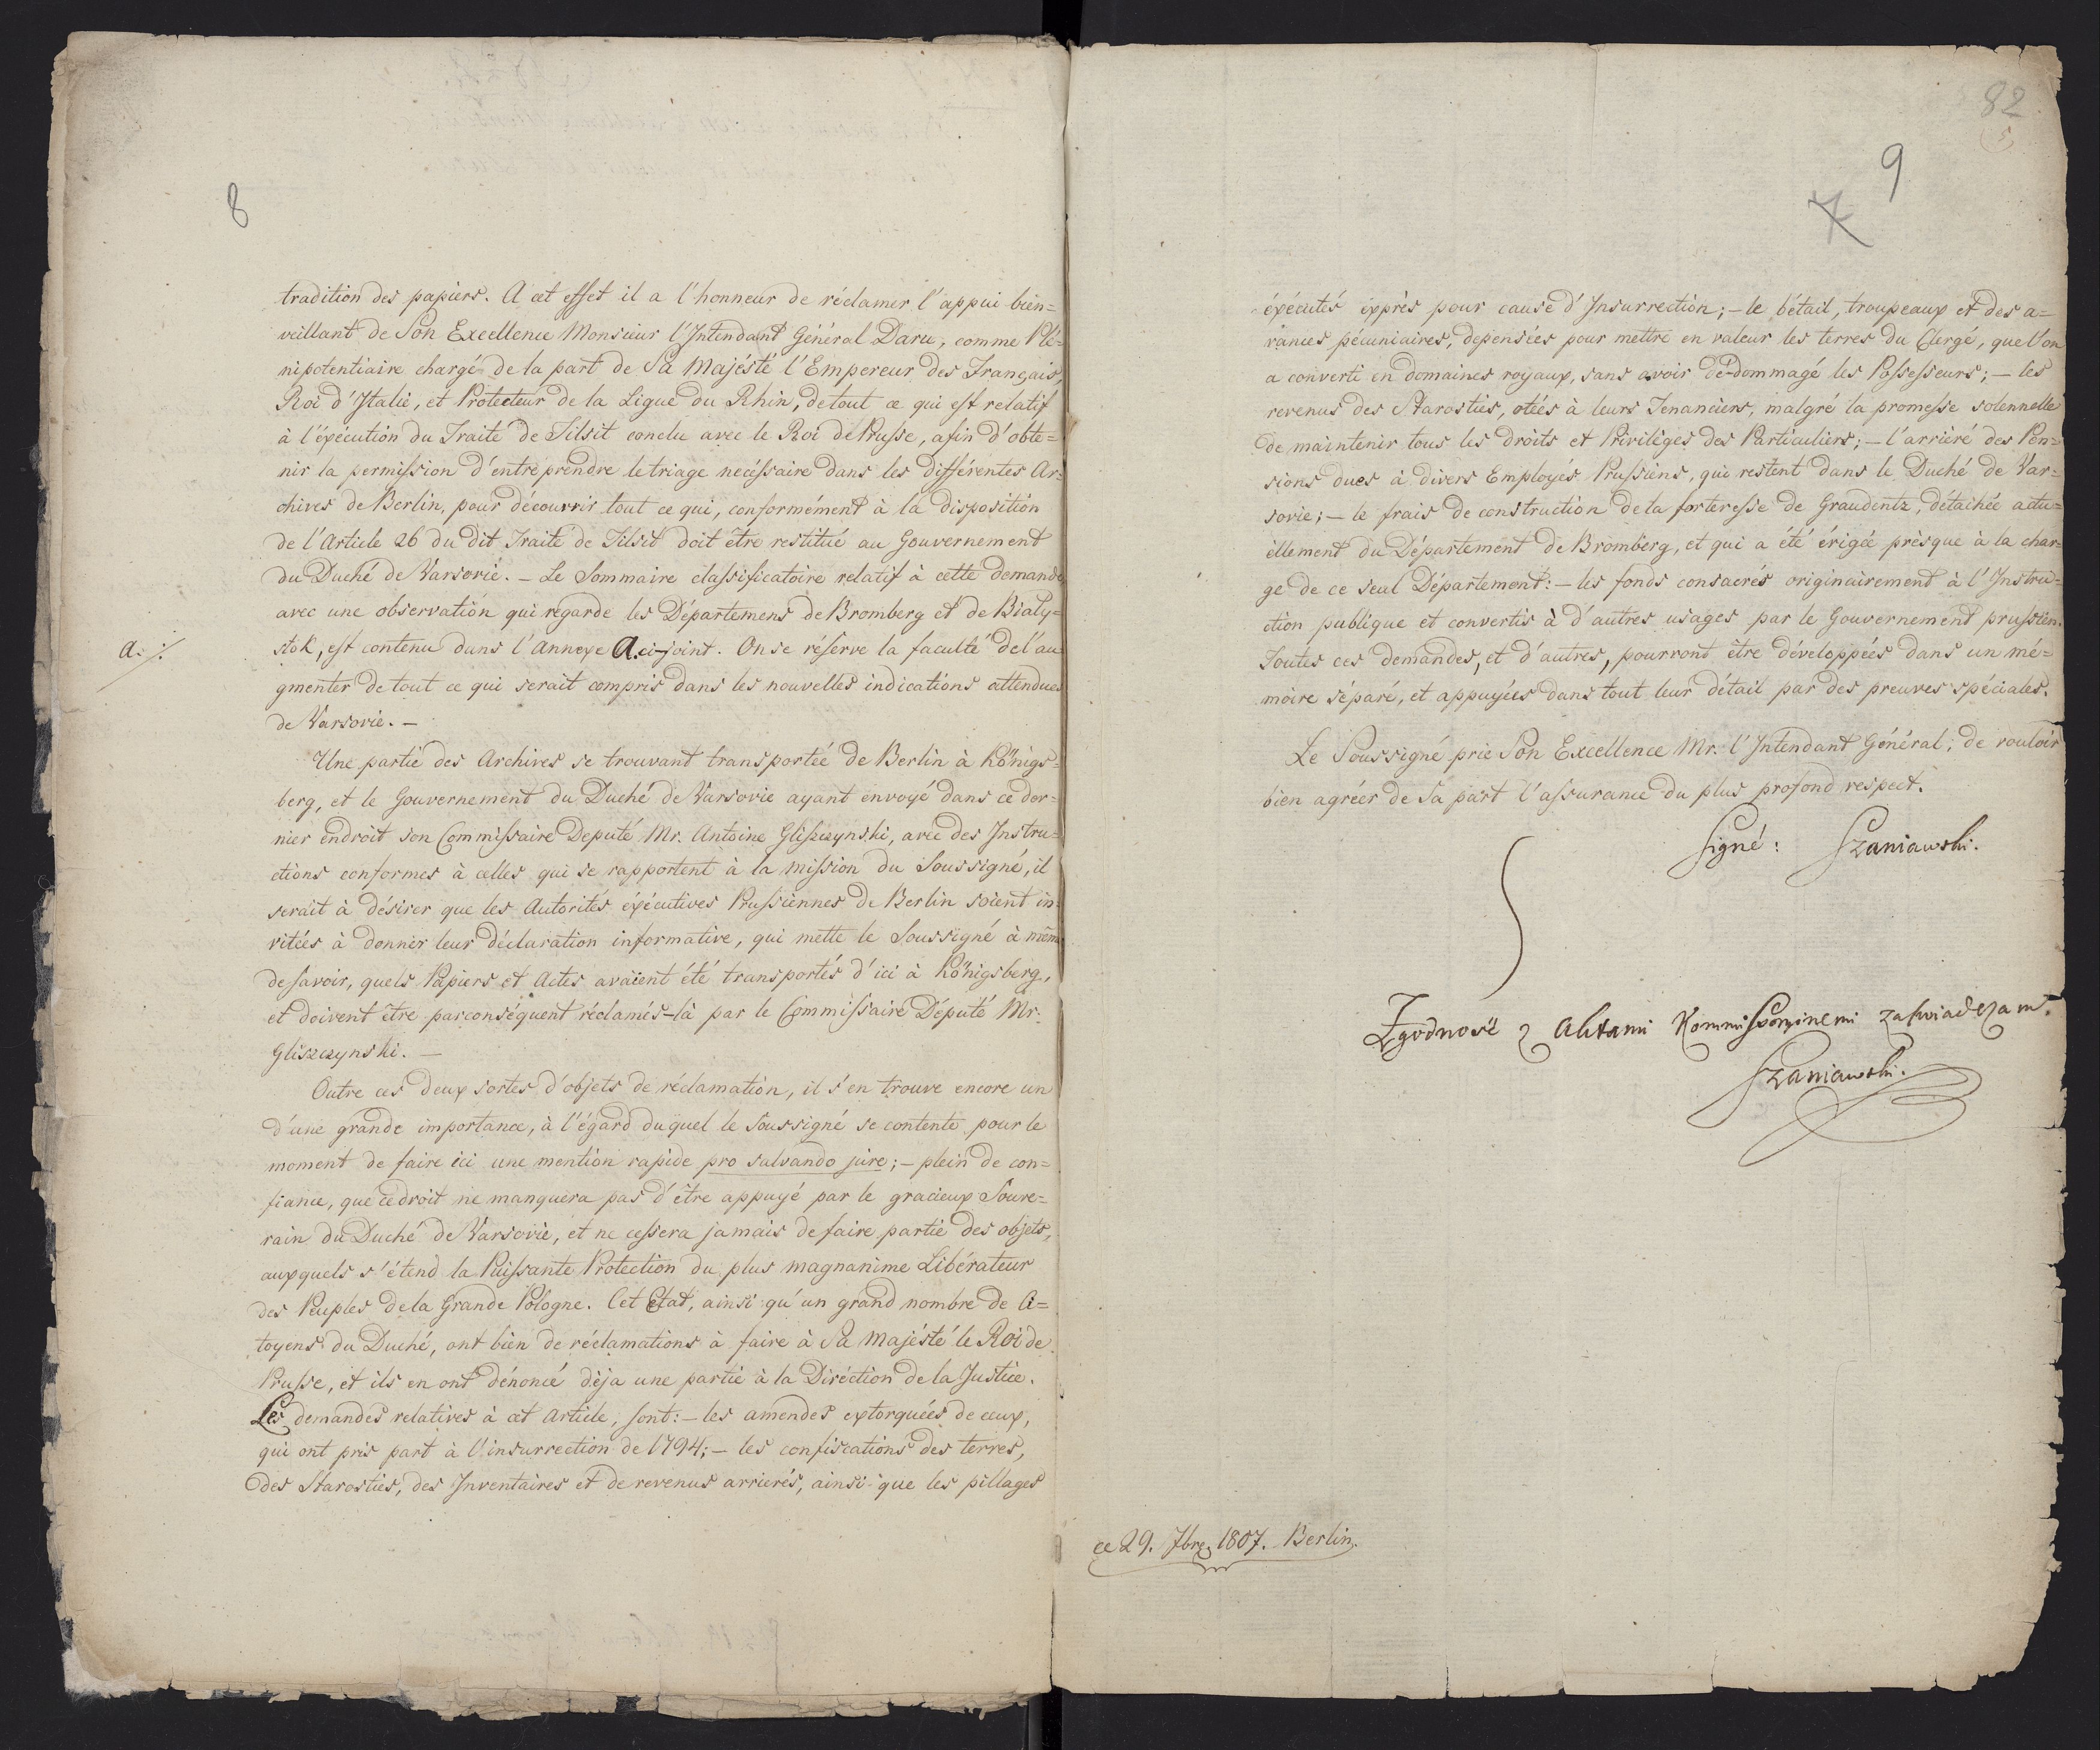 8
tradition des papiers. A cet effet il a l'honneur de réclamer l'appui bien=
veillant de Son Excellence Monsieur l'Intendant Général Daru, comme Plé=
nipotentiaire chargé de la part de Sa Majésté l'Empereur des Français,
Roi d'Italie, et Protecteur de la Ligue du Rhin, de tout ce qui est relatif
à l'éxécution du Traité de Tilsit conclu avec le Roi de Prusse, afin d'obte=
nir la permission d'entreprendre le triage necéssaire dans les différentes Ar=
chives de Berlin, pour découvrir tout ce qui, conformément à la disposition
de l'Article 26 du dit Traité de Tilsit doit être restitué au Gouvernement
du Duché de Varsovie. — Le Sommaire classificatoire relatif à cette demande
avec une observation qui regarde les Départemens de Bromberg et de Bialy=
A. ·/.
stok, est contenu dans l'Annexe A. ci-joint. On se réserve la faculté de l'au
gmenter de tout ce qui serait compris dans les nouvelles indications attendues
de Varsovie. —
Une partie des Archives se trouvant transportée de Berlin à Königs=
berg, et le Gouvernement du Duché de Varsovie ayant envoyé dans ce der=
nier endroit son Commissaire Deputé Mr. Antoine Gliszczynski, avec des Instru=
ctions conformes à celles qui se rapportent à la mission du Soussigné, il
serait à désirer que les Autorités éxécutives Prussiennes de Berlin soient in=
vitées à donner leur déclaration informative, qui mette le Soussigné à même
de savoir, quels Papiers et Actes avaient été transportés d'ici à Königsberg,
et doivent être parconséquent réclamés-là par le Commissaire Député Mr.
Gliszczynski. —
Outre ces deux sortes d'objets de réclamation, il s'en trouve encore un
d'une grande importance, à l'égard duquel le Soussigné se contente pour le
moment de faire ici une mention rapide pro salvando jure; — plein de con=
fiance, que ce droit ne manquera pas d'être appuyé par le gracieux Souve=
rain du Duché de Varsovie, et ne cessera jamais de faire partie des objets,
auxquels s'étend la Puissante Protection du plus magnanime Libérateur
des Peuples de la Grande Pologne. Cet Etat, ainsi qu'un grand nombre de Ci=
toyens du Duché, ont bien de réclamations à faire à Sa Majésté le Roi de
Prusse, et ils en ont dénoncé déja une partie à la Diréction de la Justice.
Les demandes relatives à cet Article, sont: — les amendes extorquées de ceux,
qui ont pris part à l'insurrection de 1794; — les confiscations des terres,
des Starosties, des Inventaires et de revenus arrierés, ainsi que les pillages
82
5
9
7
éxécutés exprès pour cause d'Insurrection; — le bétail, troupeaux et des a=
vances pécuniaires, depensées pour mettre en valeur les terres du Clergé, que l'on
a converti en domaines royaux, sans avoir dé-dommagé les Possesseurs; — les
revenus des Starosties, otées à leurs Tenanciers, malgré la promesse solennelle
de maintenir tous les droits et Privilèges des Particuliers; — l'arriéré des Pen=
sions dues à divers Employés Prussiens, qui restent dans le Duché de Var=
sovie; — le frais de construction de la forteresse de Graudentz, détachée actu=
ellement du Département de Bromberg, et qui a été érigée prèsque à la char=
ge de ce seul Département: — les fonds consacrés originairement à l'Instru=
ction publique et convertis à d'autres usages par le Gouvernement prussien.
Toutes ces demandes, et d'autres, pourront être développées dans un mé=
moire séparé, et appuyées dans tout leur détail par des preuves spéciales.
Le Soussigné prie Son Excellence Mr. l'Intendant Général, de vouloir
bien agréer de Sa part l'assurance du plus profond respect.
Signé: Szaniawski.
Zgodność z Aktami zaświadczam.
Szaniawski.
ce 29. 7bre 1807. Berlin.